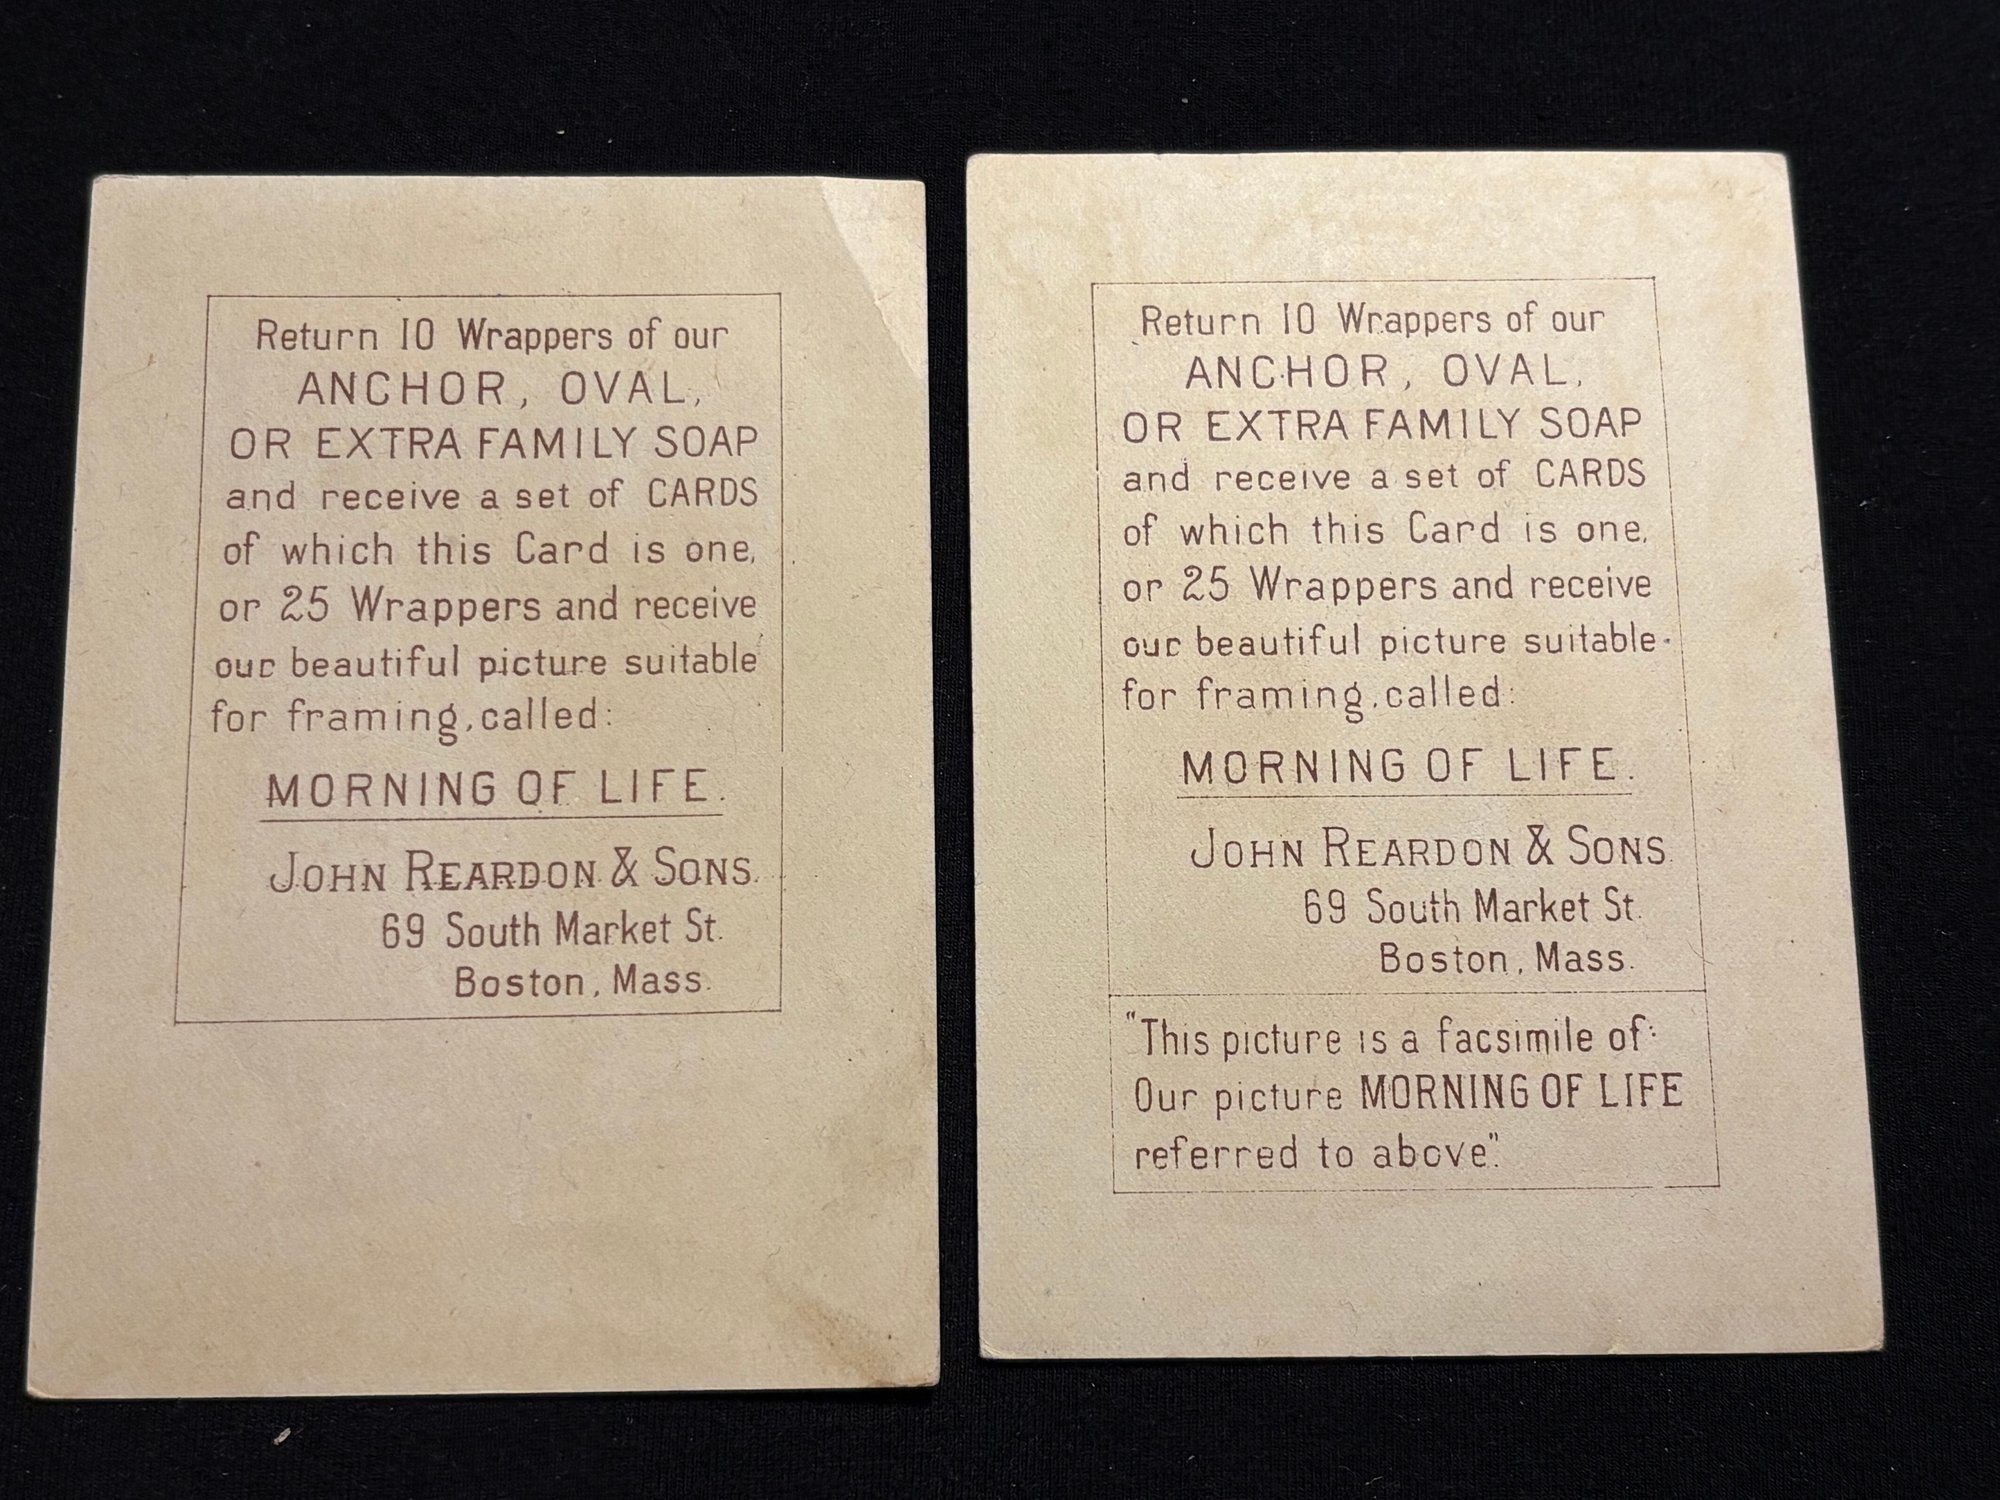 Return 10 Wrappers of our
ANCHOR, OVAL,
OR EXTRA FAMILY SOAP
and receive a set of CARDS
of which this Card is one,
or 25 Wrappers and receive
our beautiful picture suitable
for framing, called:
MORNING OF LIFE.
JOHN REARDON & SONS.
69 South Market St.
Boston, Mass.
Return 10 Wrappers of our
ANCHOR, OVAL,
OR EXTRA FAMILY SOAP
and receive a set of CARDS
of which this Card is one,
or 25 Wrappers and receive
our beautiful picture suitable
for framing, called:
MORNING OF LIFE.
JOHN REARDON & SONS.
69 South Market St.
Boston, Mass.
"This picture is a facsimile of:
Our picture MORNING OF LIFE
referred to above".